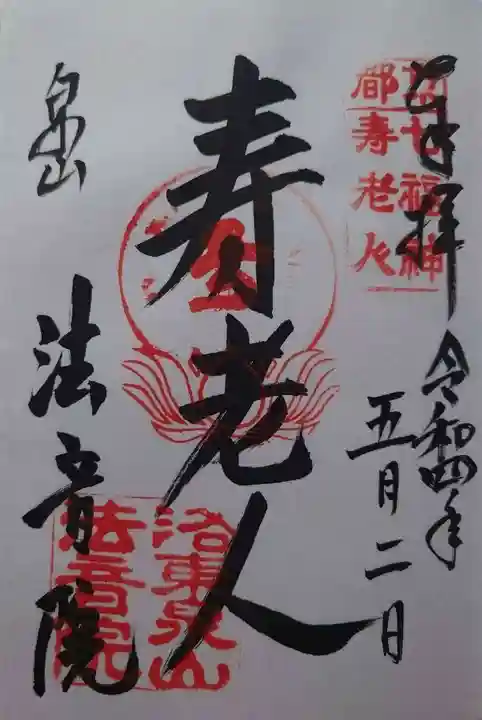 奉拝
令和四年
五月二日
寿老人
泉山
法音院
七福神
都寿老人
洛東泉山
法音院